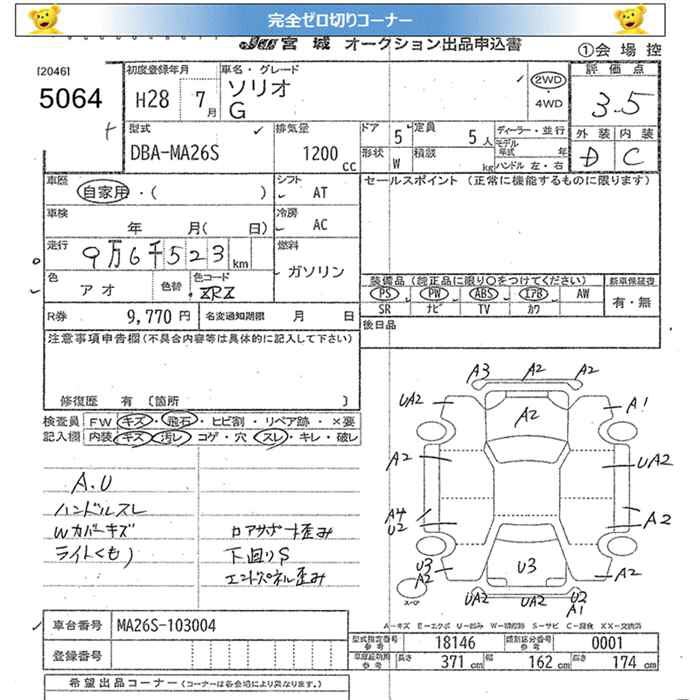 完全ゼロ切りコーナー
JU 宮城 オークション出品申込書
①会場控
[2046]
5064
初度登録年月
H28 7月
車名・グレード
ソリオ
G
2WD
・4WD
評価点
3.5
外装 内装
D C
型式
DBA-MA26S
排気量
1200 CC
ドア 5
定員 5人
形状 W
積載 kg
ディーラー・並行
モデル年式 年
ハンドル 左・右
車歴
自家用・( )
シフト
AT
セールスポイント (正常に機能するものに限ります)
車検
年 月( 日)
冷房
AC
走行
9万6千523km
燃料
ガソリン
色
アオ
色替
色コード
ZRZ
装備品 (純正品に限り○をつけてください)
新車保証書
PS PW ABS エアB AW
SR ナビ TV カワ
有・無
R券 9,770円
名変通知期限 月 日
後日品
注意事項申告欄(不具合内容等は具体的に記入して下さい)
修復歴 有 〔箇所 〕
検査員記入欄
FW キズ・飛石・ヒビ割・リペア跡・×要
内装 キズ・汚レ・コゲ・穴・スレ・キレ・破レ
A.U
ハンドルスレ
Wカバーキズ
ライトくもり
ロアサポート歪み
下回りS
エンドパネル歪み
A3 A2 A2
UA2 A2 A1
A2 UA2
A4
U2 A2
U3
A2 U3 A2
スペア
UA2 UA2 U2
A1
A－キズ E－エクボ U－凹み W－補修跡 S－サビ C－腐食 XX－交換済
車台番号 MA26S-103004
登録番号
型式指定番号 参考 18146
類別区分番号 参考 0001
参考 長さ 371cm 幅 162cm 高さ 174cm
希望出品コーナー (コーナーは各会場により異なります)